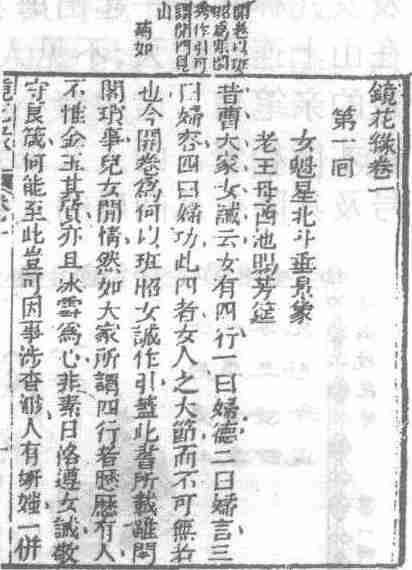 開卷以班
昭爲張閨
秀作引可
謂開門見
山
蔬如
鏡花緣卷一
第一囘
女魁星北斗垂景象
老王母西池賜芳筵
昔曹大家女誡云女有四行一曰婦德二曰婦言三
曰婦容四曰婦功此四者女人之大節而不可無者
也今開卷爲何以班昭女誡作引蓋此書所載雖閨
閣瑣事兒女閒情然如大家所謂四行者歷歷有人
不惟金玉其質亦且冰雪爲心非素日恪遵女誡敬
守良箴何能至此豈可因事涉杳渺人有妍媸一併